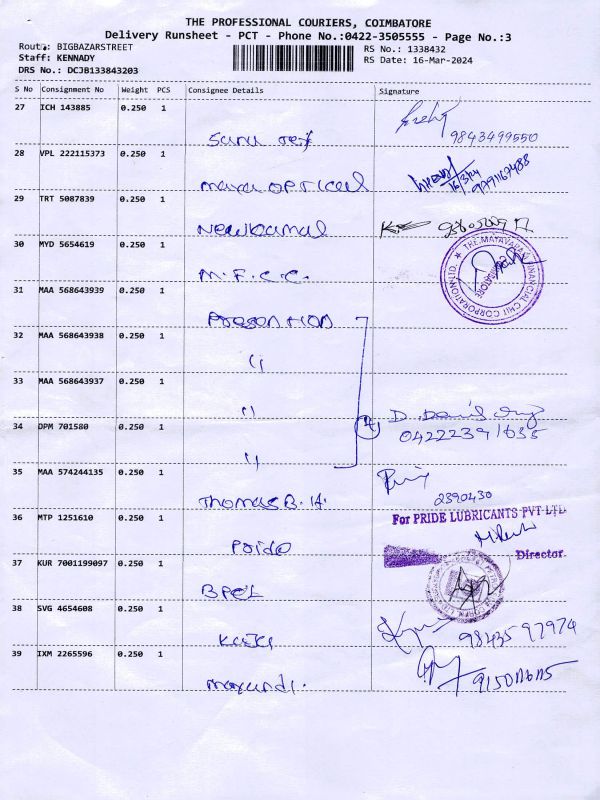 THE PROFESSIONAL COURIERS, COIMBATORE
Delivery Runsheet - PCT - Phone No.:0422-3505555 - Page No.:3
Route: BIGBAZARSTREET RS No.: 1338432
Staff: KENNADY RS Date: 16-Mar-2024
DRS No.: DCJB133843203
S No Consignment No Weight PCS Consignee Details Signature
27 ICH 143885 0.250 1
9843499550
28 VPL 222115373 0.250 1
maya optical 16/3/24 9791167488
29 TRT 5087839 0.250 1
New kamal
30 MYD 5654619 0.250 1
M.F.C.C. THE MATAVARAYAN FINANCIAL CHIT CORPORATION LTD.
31 MAA 568643939 0.250 1
32 MAA 568643938 0.250 1
"
33 MAA 568643937 0.250 1
"
34 DPM 701580 0.250 1
" 4 04222391635
35 MAA 574244135 0.250 1
Thomas B. H. 2390430
36 MTP 1251610 0.250 1
For PRIDE LUBRICANTS PVT LTD
Pride
Director
37 KUR 7001199097 0.250 1
BPCL
38 SVG 4654608 0.250 1
9843597974
39 IXM 2265596 0.250 1